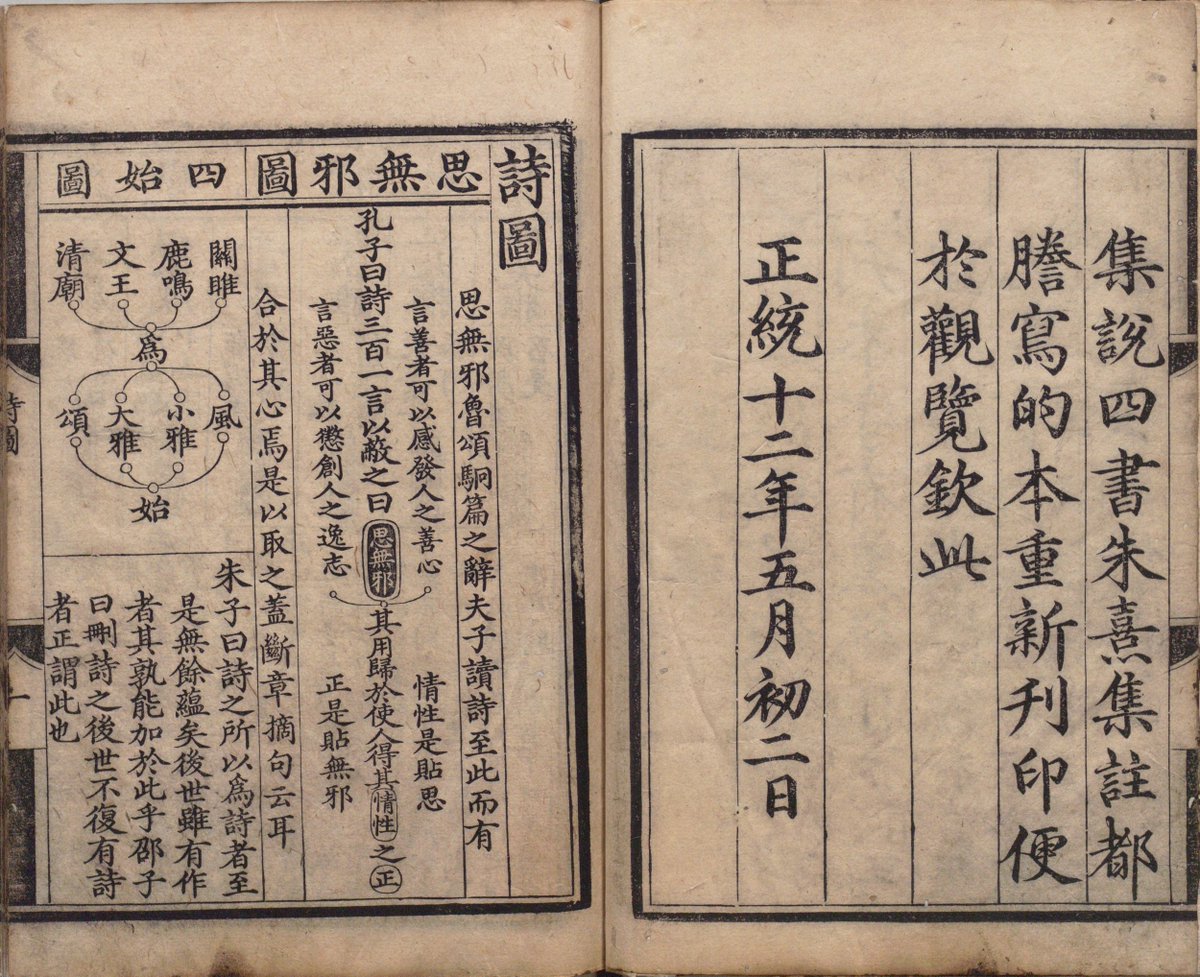 集說四書朱熹集註都
謄寫的本重新刋印便
於觀覽欽此
正統十二年五月初二日
詩圖
思無邪圖
思無邪魯頌駉篇之辭夫子讀詩至此而有
言善者可以感發人之善心
情性是貼思
孔子曰詩三百一言以蔽之曰思無邪其用歸於使人得其情性之正
言惡者可以懲創人之逸志
正是貼無邪
合於其心焉是以取之蓋斷章摘句云耳
四始圖
關雎
鹿鳴
文王
清廟
爲
風
小雅
大雅
頌
始
朱子曰詩之所以爲詩者至
是無餘蘊矣後世雖有作
者其孰能加於此乎邵子
曰刪詩之後世不復有詩
者正謂此也
詩圖
一